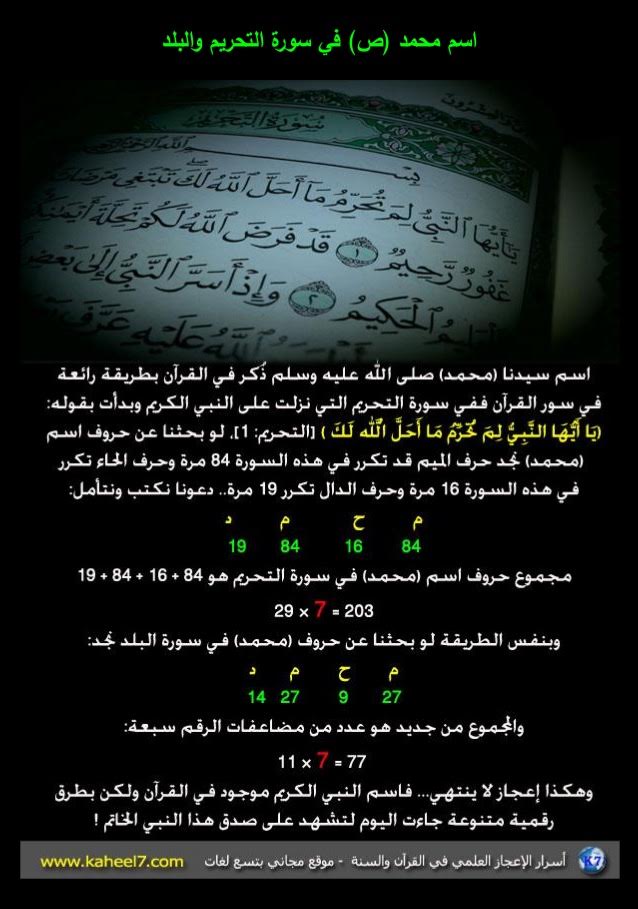 اسم محمد (ص) في سورة التحريم والبلد
سُورَةُ التَّحْرِيمِ
يَٰٓأَيُّهَا ٱلنَّبِىُّ لِمَ تُحَرِّمُ مَآ أَحَلَّ ٱللَّهُ لَكَ تَبْتَغِى مَرْضَاتَ
غَفُورٌ رَّحِيمٌ ١ قَدْ فَرَضَ ٱللَّهُ لَكُمْ تَحِلَّةَ أَيْمَٰنِكُمْ
ٱلْحَكِيمُ ٢ وَإِذْ أَسَرَّ ٱلنَّبِىُّ إِلَىٰ بَعْضِ
ٱللَّهُ عَلَيْهِ عَرَّفَ
اسم سيدنا (محمد) صلى الله عليه وسلم ذُكر في القرآن بطريقة رائعة
في سور القرآن ففي سورة التحريم التي نزلت على النبي الكريم وبدأت بقوله:
(يَا أَيُّهَا النَّبِيُّ لِمَ تُحَرِّمُ مَا أَحَلَّ اللَّهُ لَكَ ) [التحريم: 1]. لو بحثنا عن حروف اسم
(محمد) نجد حرف الميم قد تكرر في هذه السورة 84 مرة وحرف الحاء تكرر
في هذه السورة 16 مرة وحرف الدال تكرر 19 مرة.. دعونا نكتب ونتأمل:
م ح م د
84 16 84 19
مجموع حروف اسم (محمد) في سورة التحريم هو 84 + 16 + 84 + 19
203 = 7 × 29
وبنفس الطريقة لو بحثنا عن حروف (محمد) في سورة البلد نجد:
م ح م د
27 9 27 14
والمجموع من جديد هو عدد من مضاعفات الرقم سبعة:
77 = 7 × 11
وهكذا إعجاز لا ينتهي... فاسم النبي الكريم موجود في القرآن ولكن بطرق
رقمية متنوعة جاءت اليوم لتشهد على صدق هذا النبي الخاتم !
أسرار الإعجاز العلمي في القرآن والسنة - موقع مجاني بتسع لغات www.kaheel7.com
K7